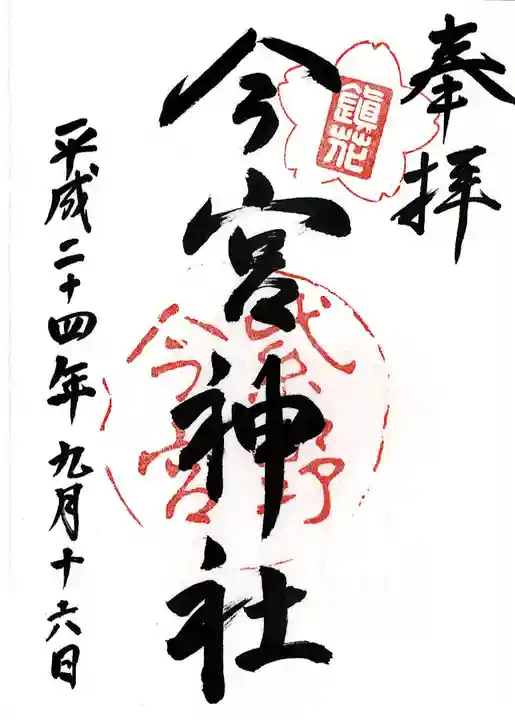 奉拝
鎮花
今宮神社
紫野
今宮
平成二十四年九月十六日